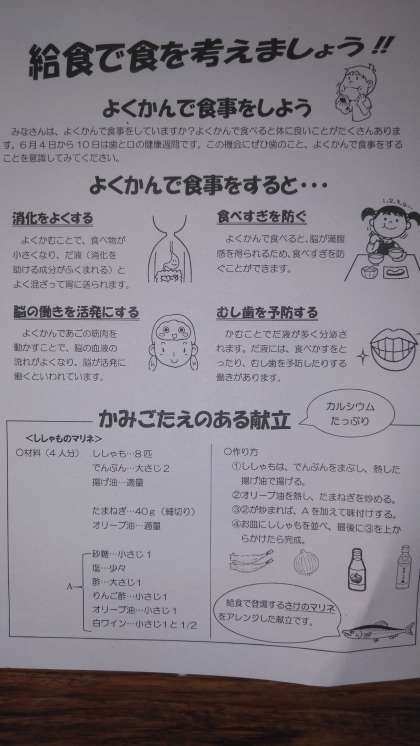 給食で食を考えましょう!!
よくかんで食事をしよう
みなさんは、よくかんで食事をしていますか？よくかんで食べると体に良いことがたくさんありま
す。6月4日から10日は歯と口の健康週間です。この機会にぜひ歯のこと、よくかんで食事をする
ことを意識してみてください。
よくかんで食事をすると・・・
消化をよくする
よくかむことで、食べ物が
小さくなり、だ液（消化を
助ける成分がふくまれる）と
よく混ざって胃に送られます。
食べすぎを防ぐ
よくかんで食べると、脳が満腹
感を得られるため、食べすぎを防
ぐことができます。
脳の働きを活発にする
よくかんであごの筋肉を
動かすことで、脳の血液の
流れがよくなり、脳が活発に
働くといわれています。
むし歯を予防する
かむことでだ液が多く分泌さ
れます。だ液には、食べかすをと
ったり、むし歯を予防したりする
働きがあります。
かみごたえのある献立
カルシウム
たっぷり
＜ししゃものマリネ＞
○材料（4人分）
ししゃも…8匹
でんぷん…大さじ2
揚げ油…適量
たまねぎ…40g（細切り）
オリーブ油…適量
A→
砂糖…小さじ1
塩…少々
酢…大さじ1
りんご酢…小さじ1
オリーブ油…小さじ1
白ワイン…小さじ1と1/2
○作り方
①ししゃもは、でんぷんをまぶし、熱した
揚げ油で揚げる。
②オリーブ油を熱し、たまねぎを炒める。
③②が炒まれば、Aを加えて味付けする。
④お皿にししゃもを並べ、最後に③を上か
らかけたら完成。
給食で登場するさけのマリネ
をアレンジした献立です。